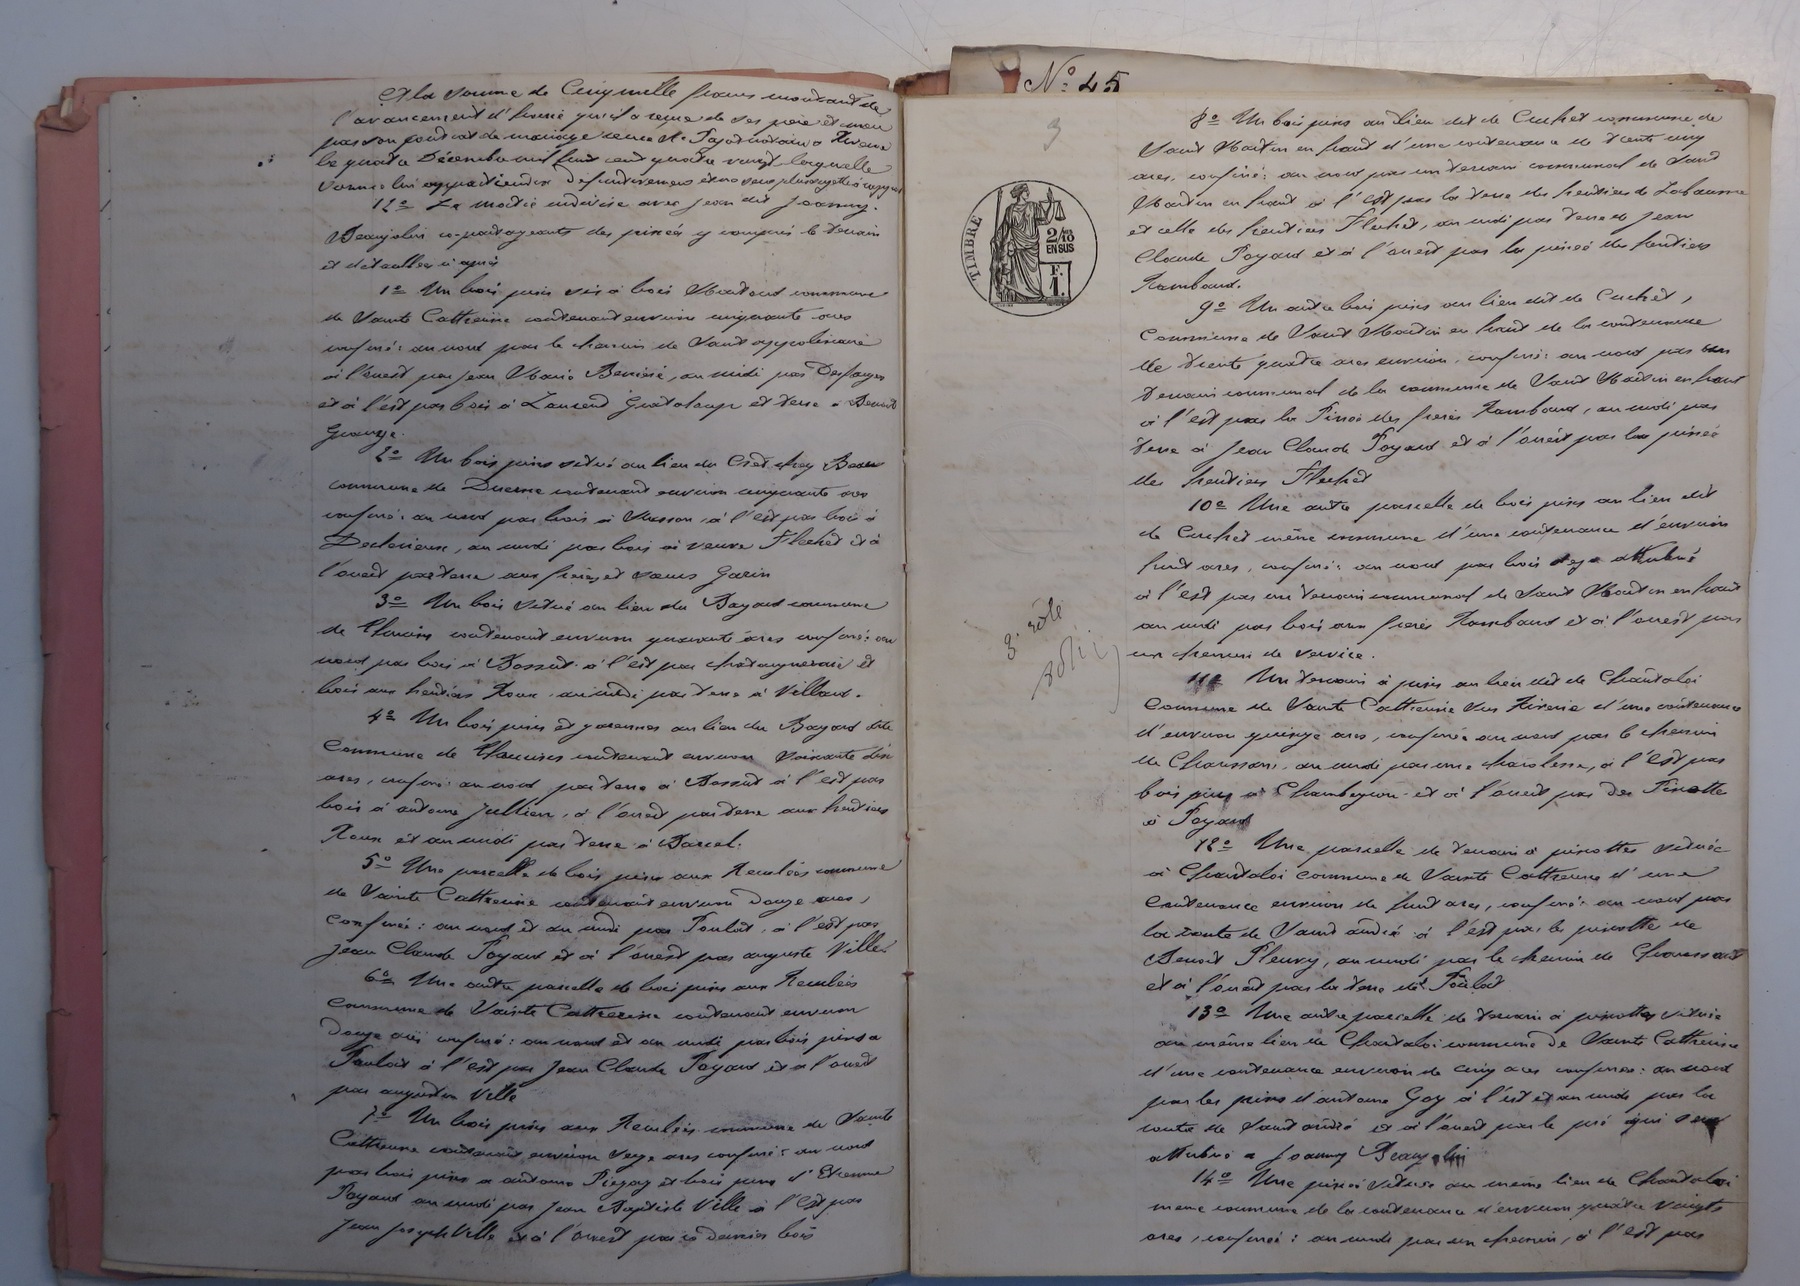 et la somme de Cinq mille francs montant de
l'avancement d'hoirie qu'il a reçue de ses père et mère
par son contrat de mariage reçu Me notaire à Riverie
le quatre Décembre mil huit cent quatre vingt laquelle
somme lui appartiendra definitivement et ne sera plus sujette à rapport
12º La moitié indivise avec Jean dit Joanny
Beaujolin co-partageants des pinées y compris le terrain
et détaillées ci après
1º Un bois pins sis à bois commune
de Sainte Catherine contenant environ cinquante ares
confiné: au nord par le chemin de Saint appolinaire
à l'ouest par Jean Marie au midi par
et à l'est par bois à Laurent et terre à Benoit
Grange.
2º Un bois pins situé au lieu du
commune de Duerne contenant environ cinquante ares
confiné: au nord par bois à à l'est par bois à
au midi par bois à veuve Flechet et à
l'ouest par terre aux frères et sœurs Garin
3º Un bois situé au lieu du Bayard commune
de contenant environ quarante ares confiné: au
nord par bois à Bossut à l'est par chataigneraie et
bois aux héritiers Roux au midi par terre à Villard.
4º Un bois pins et garennes au lieu du Bayard dite
Commune de contenant environ soixante dix
ares, confiné: au nord par terre à Bossut à l'est par
bois à antoine Jullien, à l'ouest par terre aux héritiers
Roux et au midi par terre à
5º Une parcelle de bois pins aux commune
de Sainte Catherine contenant environ douze ares,
confiné: au nord et au midi par Poulat, à l'est par
Jean Claude Poyard et à l'ouest par auguste Ville.
6º Une autre parcelle de bois pins aux
commune de Sainte Catherine contenant environ
douze ares confiné: au nord et au midi par bois pins à
Poulat à l'est par Jean Claude Poyard et à l'ouest
par augustin Ville
7º Un bois pins aux commune de Sainte
Catherine contenant environ seize ares confiné: au nord
par bois pins à antoine et bois pins d'Etienne
Poyard au midi par Jean Baptiste Ville à l'est par
Jean Joseph Ville et à l'ouest par ce dernier bois
Nº 45
3
TIMBRE
2/10
EN SUS
F.
1.
3e rôle
8º Un bois pins au lieu dit de Cuchet commune de
Saint Martin en haut d'une contenance de trente cinq
ares, confiné: au nord par un terrain communal de Saint
Martin en haut à l'est par la terre des héritiers de
et celle des héritiers Flechet, au midi par terre de Jean
Claude Poyard et à l'ouest par la pinée des héritiers
Rambaud.
9º Un autre bois pins au lieu dit de Cuchet,
commune de Saint Martin en haut de la contenance
de trente quatre ares environ, confiné: au nord par un
terrain communal de la commune de Saint Martin en haut
à l'est par la Pinée des frères Rambaud, au midi par
terre à Jean Claude Poyard et à l'ouest par la pinée
des héritiers Flechet
10º Une autre parcelle de bois pins au lieu dit
de Cuchet même commune d'une contenance d'environ
huit ares, confiné: au nord par bois deja attribué
à l'est par un terrain communal de Saint Martin en haut
au midi par bois aux frères Rambaud et à l'ouest par
un chemin de service.
11º Un terrain à pins au lieu dit de Chantaloi
Commune de Sainte Catherine sur Riverie d'une contenance
d'environ quinze ares, confiné au nord par le chemin
de Chaussan, au midi par une à l'est par
bois pins à Chambeyron et à l'ouest par des Pinotte
à Poyard
12º Une parcelle de terrain à pinottes située
à Chantaloi commune de Sainte Catherine d'une
contenance environ de huit ares, confiné: au nord par
la route de Saint andré à l'est par la pinotte de
Benoit Fleury, au midi par le chemin de
et à l'ouest par la terre de Poulat
13º Une autre parcelle de terrain à pinottes située
au même lieu de Chantaloi commune de Sainte Catherine
d'une contenance environ de cinq ares confinée: au nord
par les pins d'antoine Goy à l'est et au midi par la
route de Saint andré et à l'ouest par le pré qui sera
attribué à Joanny Beaujolin
14º Une pinée située au même lieu de Chantaloi
même commune de la contenance d'environ quatre vingts
ares, confinée: au midi par un chemin, à l'est par